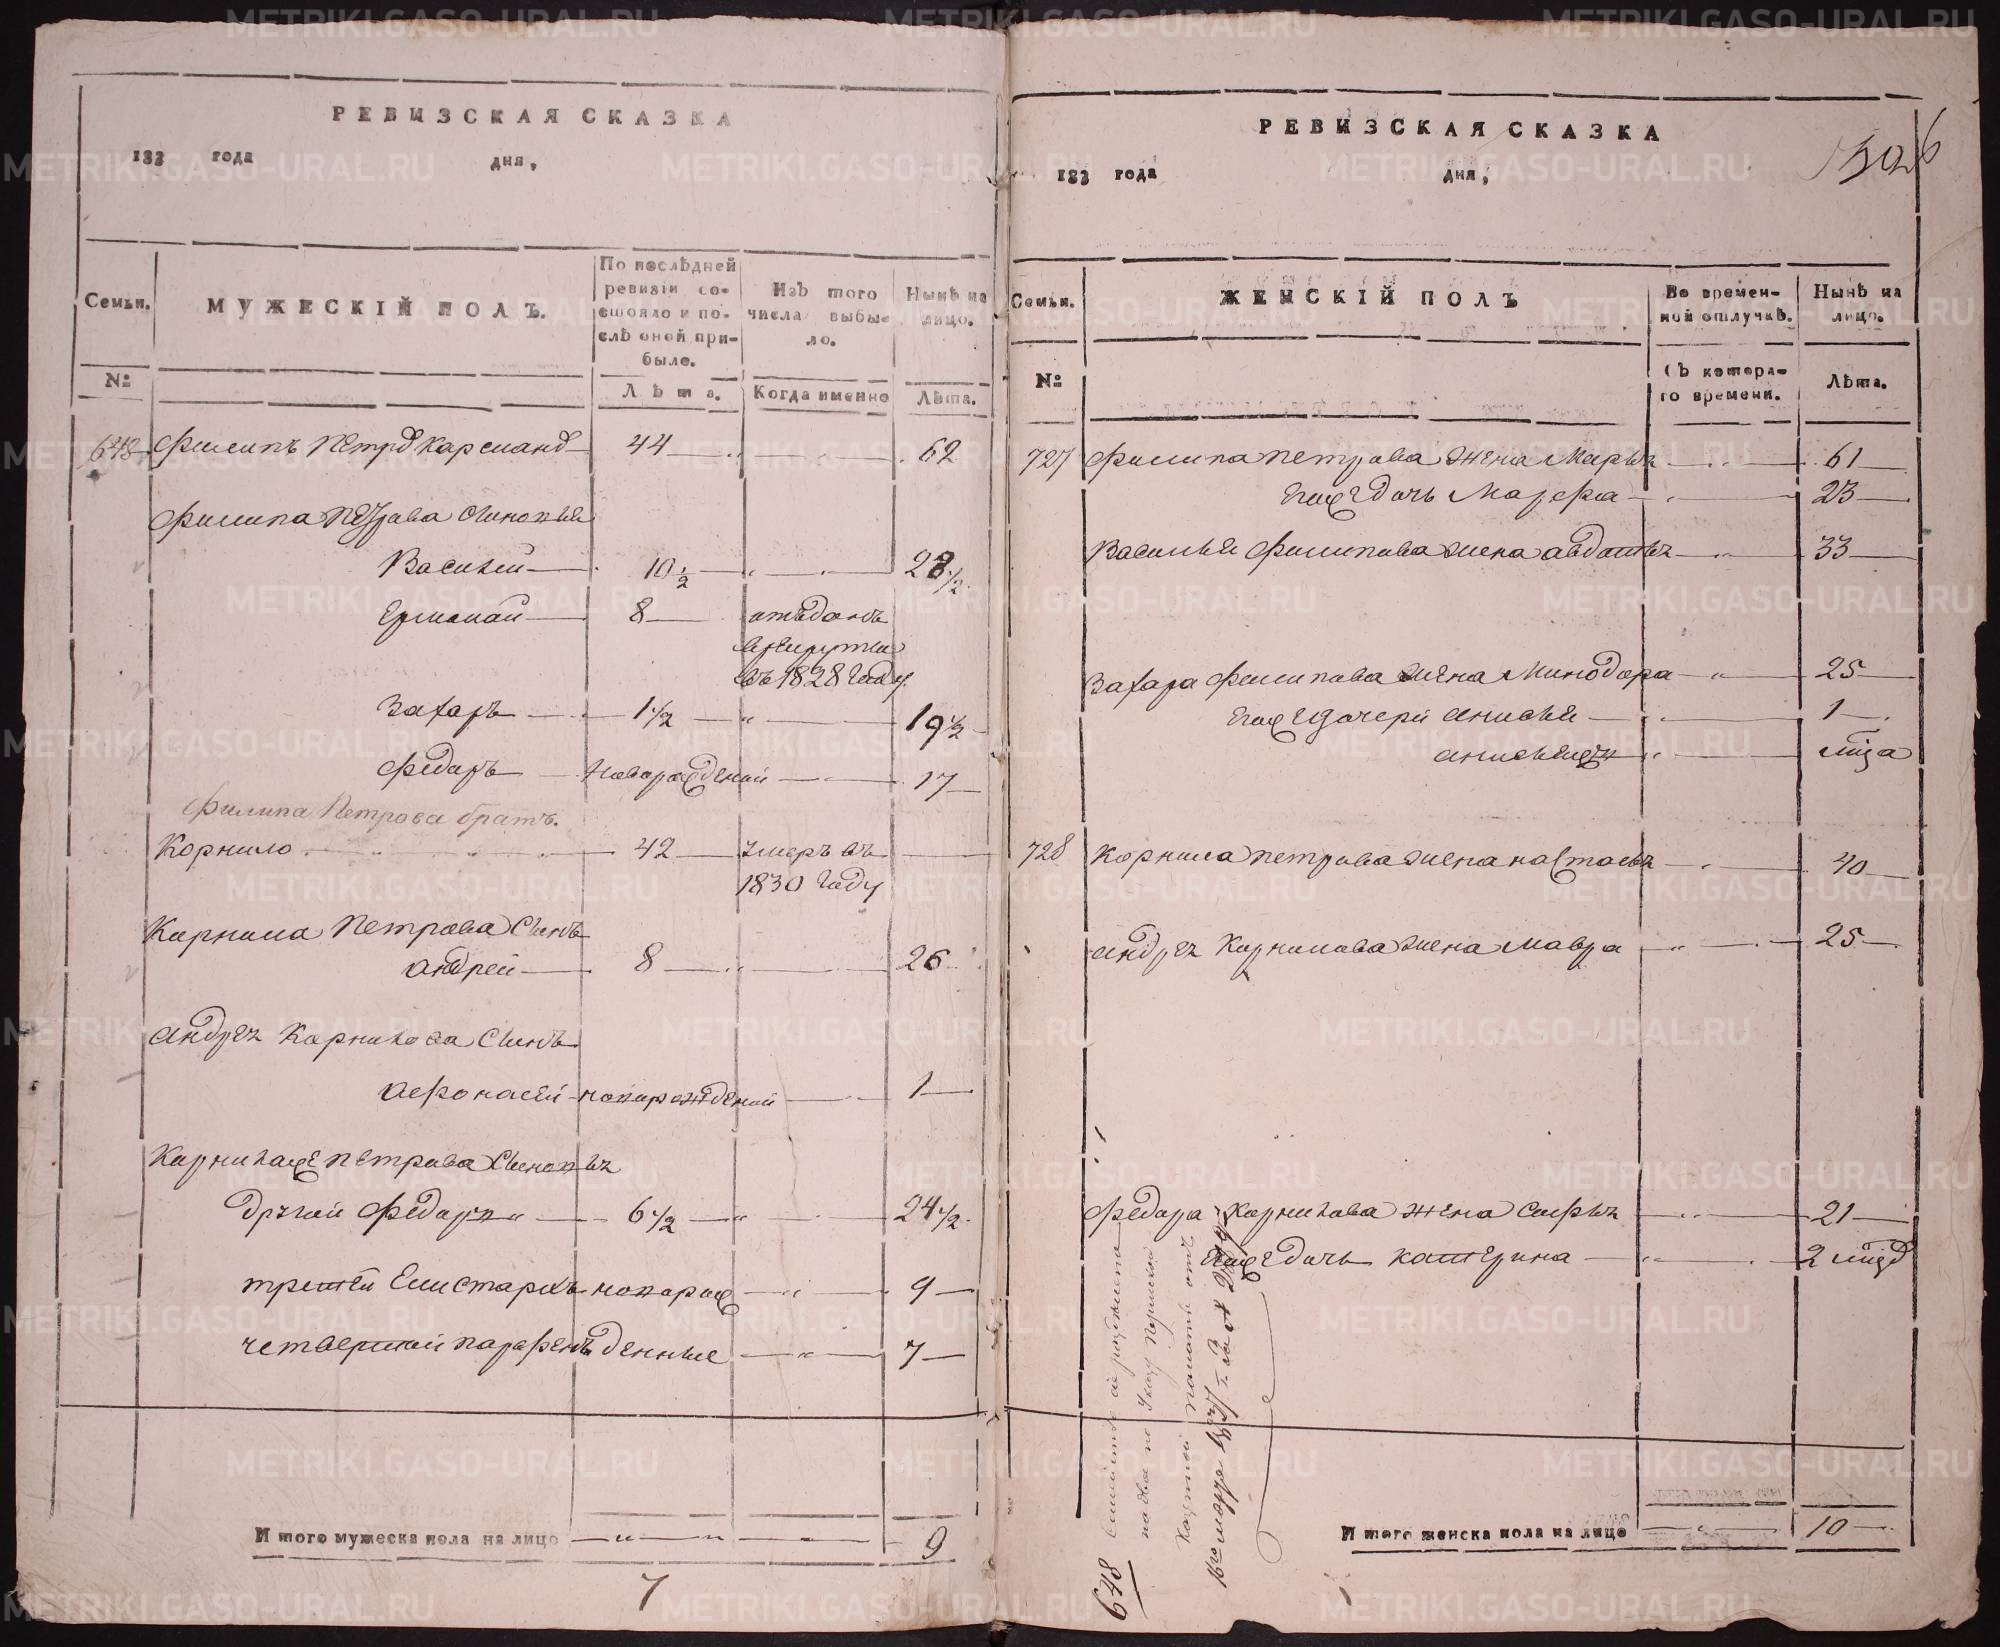 РЕВИЗСКАЯ СКАЗКА
183 года дня,
Семьи. МУЖЕСКІЙ ПОЛЪ. По послѣдней ревизіи состояло и послѣ оной прибыло. Изъ того числа выбыло. Нынѣ на лицо.
№ Лѣта. Когда именно Лѣта.
648 Филипъ Петров 44 62
Филипа Петрава Синовья
Василей 10 1/2 28 1/2
Ермолай 8 отъданъ
врекруты
въ 1828 Году
Захаръ 1 1/2 19 1/2
Федаръ Новаражденой 17
Филипа Петрова братъ.
Корнило 42 Умеръ въ
1830 Году
Карнила Петрава Сынъ
Андрей 8 26
Андрея Карнилова Сынъ
Афонасей новорожденой 1
Карнилаже Петрава Синовья
Другой Федаръ 6 1/2 24 1/2
третей Елистархъ новорож 9
четвертой Парафенъ денные 7
Итого мужеска пола на лицо 9
7
РЕВИЗСКАЯ СКАЗКА
183 года дня,
Семьи. ЖЕНСКІЙ ПОЛЪ Во временной отлучкѣ. Нынѣ на лицо.
№ Съ котораго времени. Лѣта.
727 Филипа Петрава жена Марья 61
Ихже дочь Марфа 23
Василья Филипава жена Авдотья 33
Захара Филипава жена Минодора 25
Ихже дочери Анисья 1
728 Корнила Петрава жена Настасья 40
Андрея Карнилава жена Мавра 25
Федара Карнилава жена Софья 21
Ихже дочь Катерина 2
648
Итого женска пола на лицо 10
METRIKI.GASO-URAL.RU